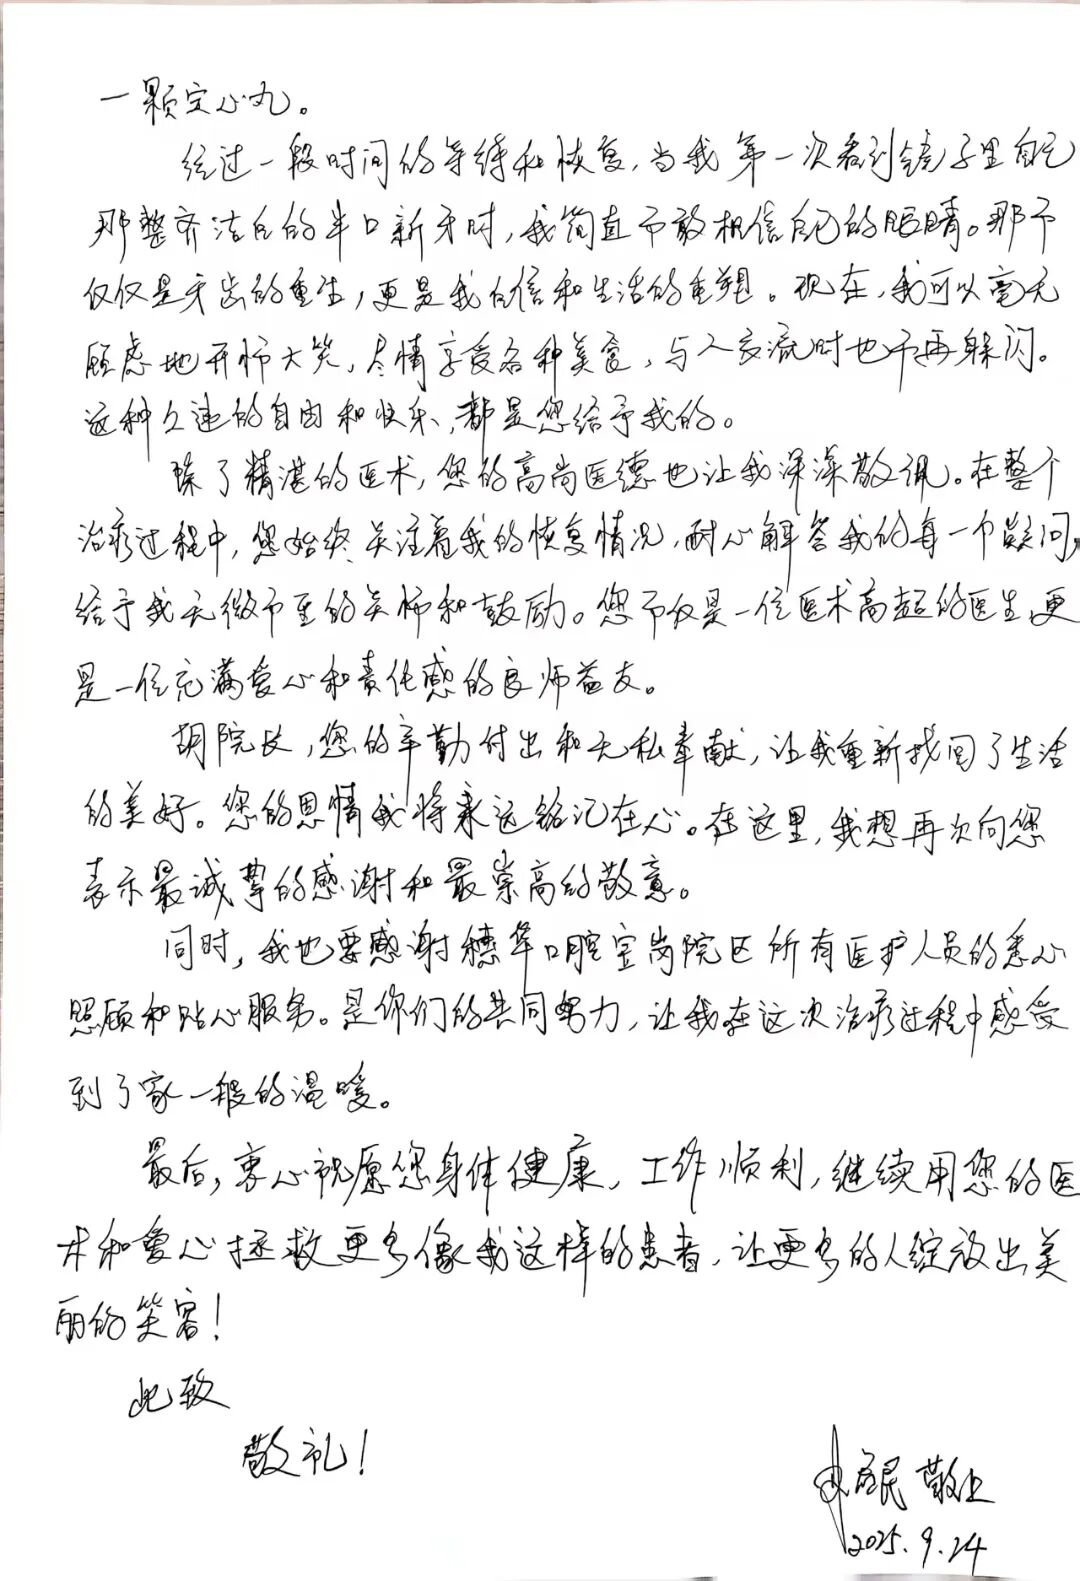 一颗定心丸。
经过一段时间的等待和恢复,当我第一次看到镜子里自己
那整齐洁白的半口新牙时,我简直不敢相信自己的眼睛。那不
仅仅是牙齿的重生,更是我自信和生活的重塑。现在,我可以毫无
顾虑地开怀大笑,尽情享受各种美食,与人交流时也不再躲闪。
这种久违的自由和快乐,都是您给予我的。
除了精湛的医术,您的高尚医德也让我深深敬佩。在整个
治疗过程中,您始终关注着我的恢复情况,耐心解答我的每一个疑问,
给予我无微不至的关怀和鼓励。您不仅是一位医术高超的医生,更
是一位充满爱心和责任感的良师益友。
胡院长,您的辛勤付出和无私奉献,让我重新找回了生活
的美好。您的恩情我将永远铭记在心。在这里,我想再次向您
表示最诚挚的感谢和最崇高的敬意。
同时,我也要感谢穗华口腔宝岗院区所有医护人员的悉心
照顾和贴心服务。是你们的共同努力,让我在这次治疗过程中感受
到了家一般的温暖。
最后,衷心祝愿您身体健康,工作顺利,继续用您的医
术和爱心拯救更多像我这样的患者,让更多的人绽放出美
丽的笑容!
此致
敬礼!
民 敬上
2025.9.24